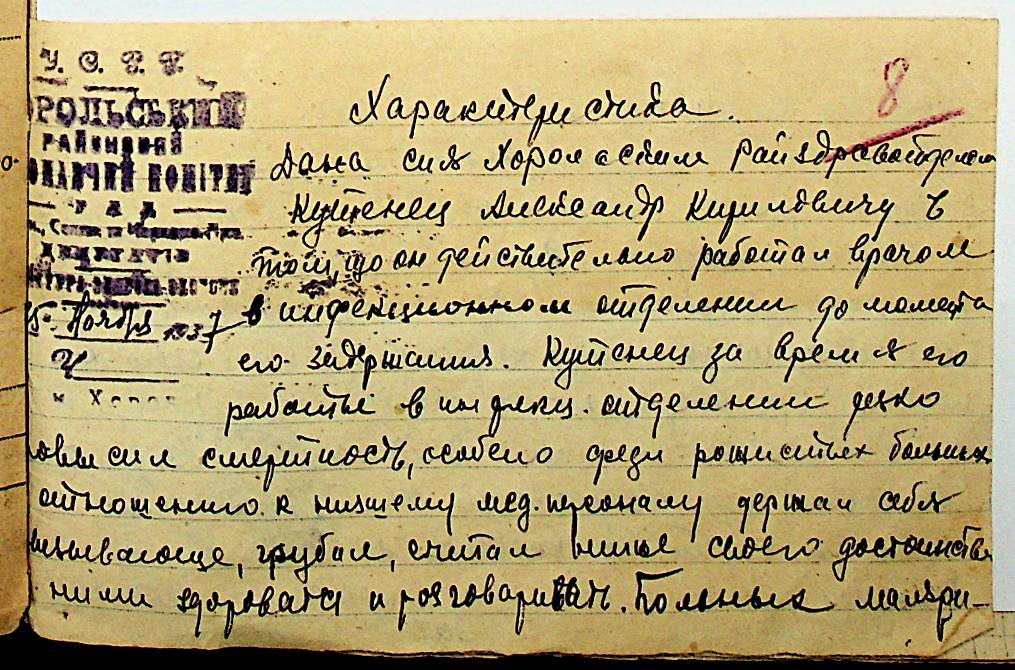 У. С. Р. Р.
ОРОЛЬСЬКИЙ
РАЙОННИЙ
ОНАВЧИЙ КОМІТЕТ
8
Характеристика.
Дана сия Хорольским Райздравотделом
Кутенец Александр Кириловичу в
том, що он действительно работал врачом
в инфекционном отделении до момента
15 Ноября 1937
его задержания. Кутенец за время его
работы в инфекц. отделении резко
овысил смертность, особено среди рожистых больных
отношению к низшему мед. персоналу держал себя
вызывающе, грубил, считал ниже своего достоинства
ними здороватся и розговаривать. Больных маляри-